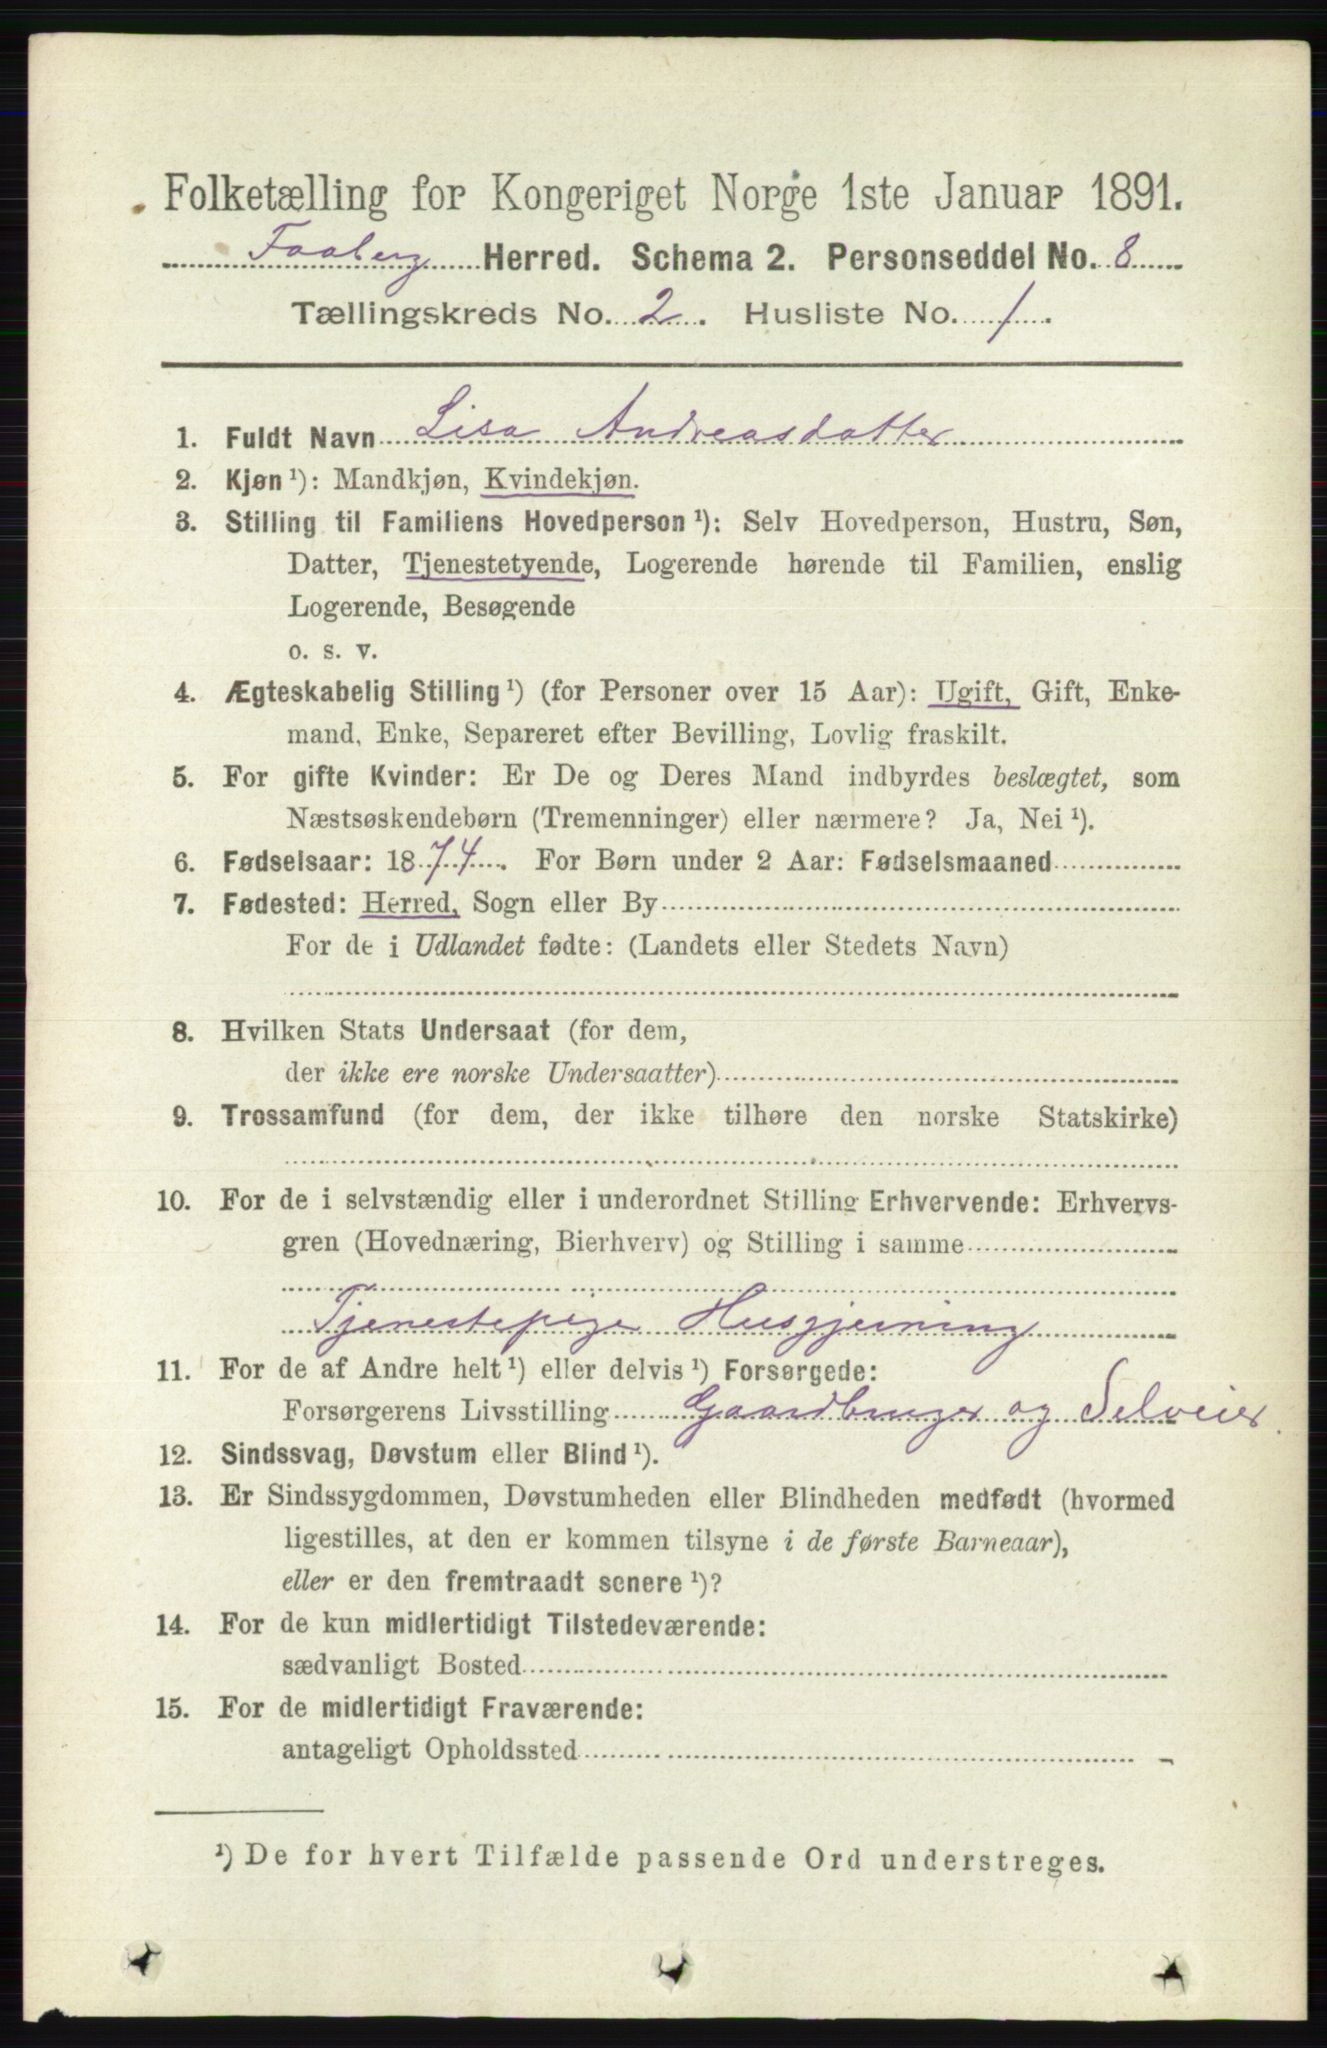 Folketælling for Kongeriget Norge 1ste Januar 1891.
Faaberg Herred. Schema 2. Personseddel No. 8
Tællingskreds No. 2. Husliste No. 1.
1. Fuldt Navn Lisa Andreasdatter
2. Kjøn ¹): Mandkjøn, Kvindekjøn.
3. Stilling til Familiens Hovedperson ¹): Selv Hovedperson, Hustru, Søn,
Datter, Tjenestetyende, Logerende hørende til Familien, enslig
Logerende, Besøgende
o. s. v.
4. Ægteskabelig Stilling ¹) (for Personer over 15 Aar): Ugift, Gift, Enke-
mand, Enke, Separeret efter Bevilling, Lovlig fraskilt.
5. For gifte Kvinder: Er De og Deres Mand indbyrdes beslægtet, som
Næstsøskendebørn (Tremenninger) eller nærmere? Ja, Nei ¹).
6. Fødselsaar: 1874. For Børn under 2 Aar: Fødselsmaaned
7. Fødested: Herred, Sogn eller By
For de i Udlandet fødte: (Landets eller Stedets Navn)
8. Hvilken Stats Undersaat (for dem,
der ikke ere norske Undersaatter)
9. Trossamfund (for dem, der ikke tilhøre den norske Statskirke)
10. For de i selvstændig eller i underordnet Stilling Erhvervende: Erhvervs-
gren (Hovednæring, Bierhverv) og Stilling i samme
Tjenestepige Husgjerning
11. For de af Andre helt ¹) eller delvis ¹) Forsørgede:
Forsørgerens Livsstilling Gaardbruger og Selveier.
12. Sindssvag, Døvstum eller Blind ¹).
13. Er Sindssygdommen, Døvstumheden eller Blindheden medfødt (hvormed
ligestilles, at den er kommen tilsyne i de første Barneaar),
eller er den fremtraadt senere ¹)?
14. For de kun midlertidigt Tilstedeværende:
sædvanligt Bosted
15. For de midlertidigt Fraværende:
antageligt Opholdssted
¹) De for hvert Tilfælde passende Ord understreges.